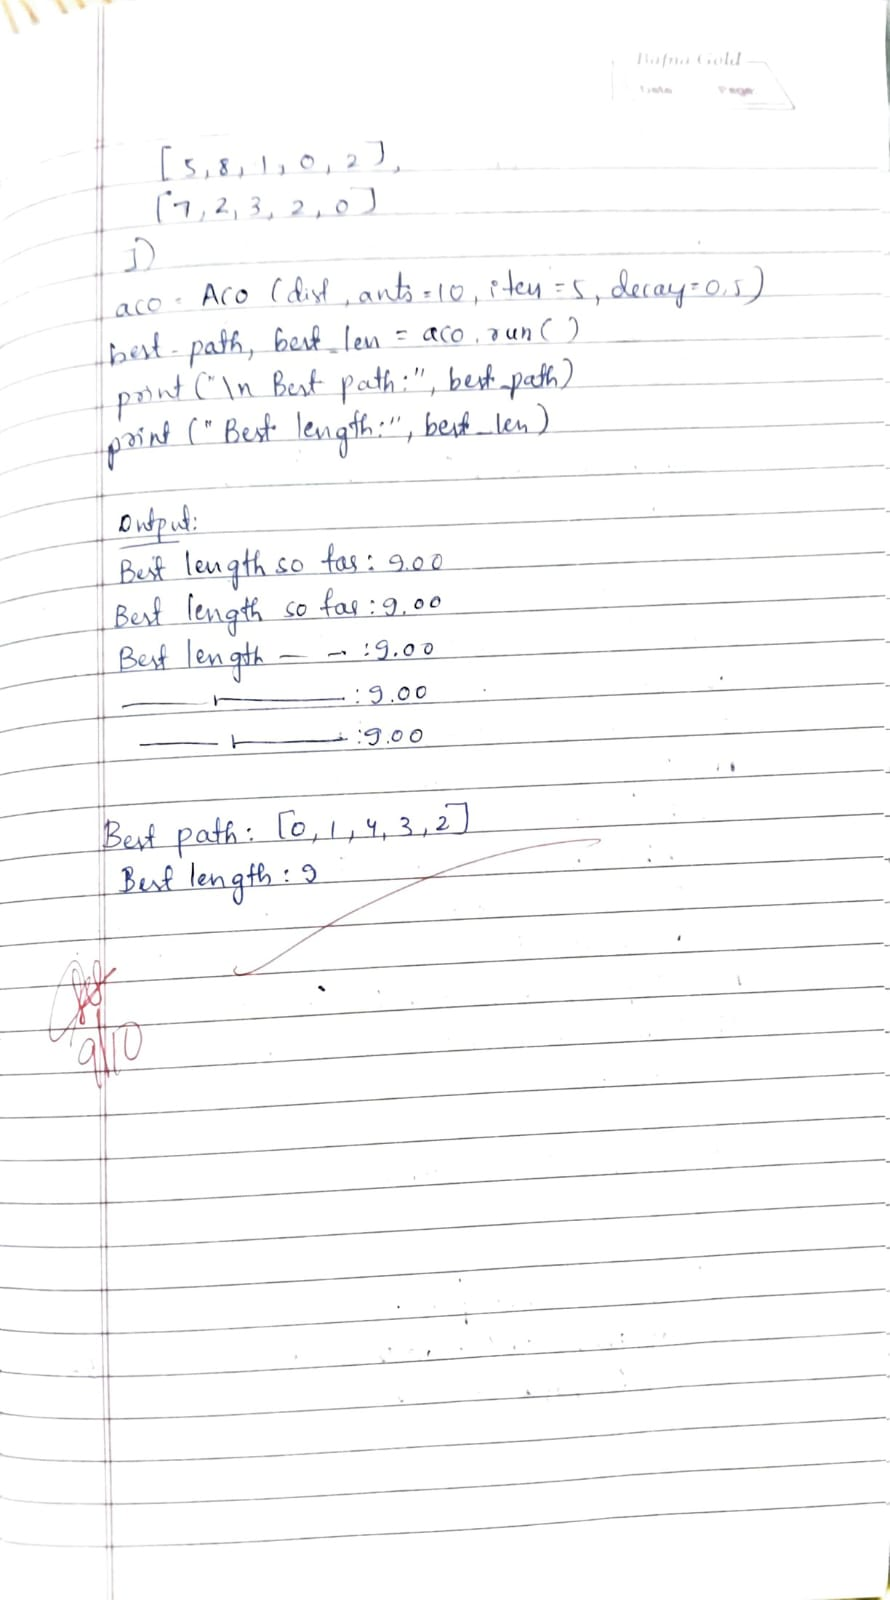 Bafna Gold
Date Page
[5,8,1,0,2],
[7,2,3,2,0]
])
aco = ACO (dist, ants=10, iter=5, decay=0.5)
best_path, best_len = aco.run()
print("\n Best path:", best_path)
print ("Best length:", best_len)
Output:
Best length so far: 9.00
Best length so far: 9.00
Best length — - : 9.00
: 9.00
: 9.00
Best path: [0,1,4,3,2]
Best length: 9
9/10